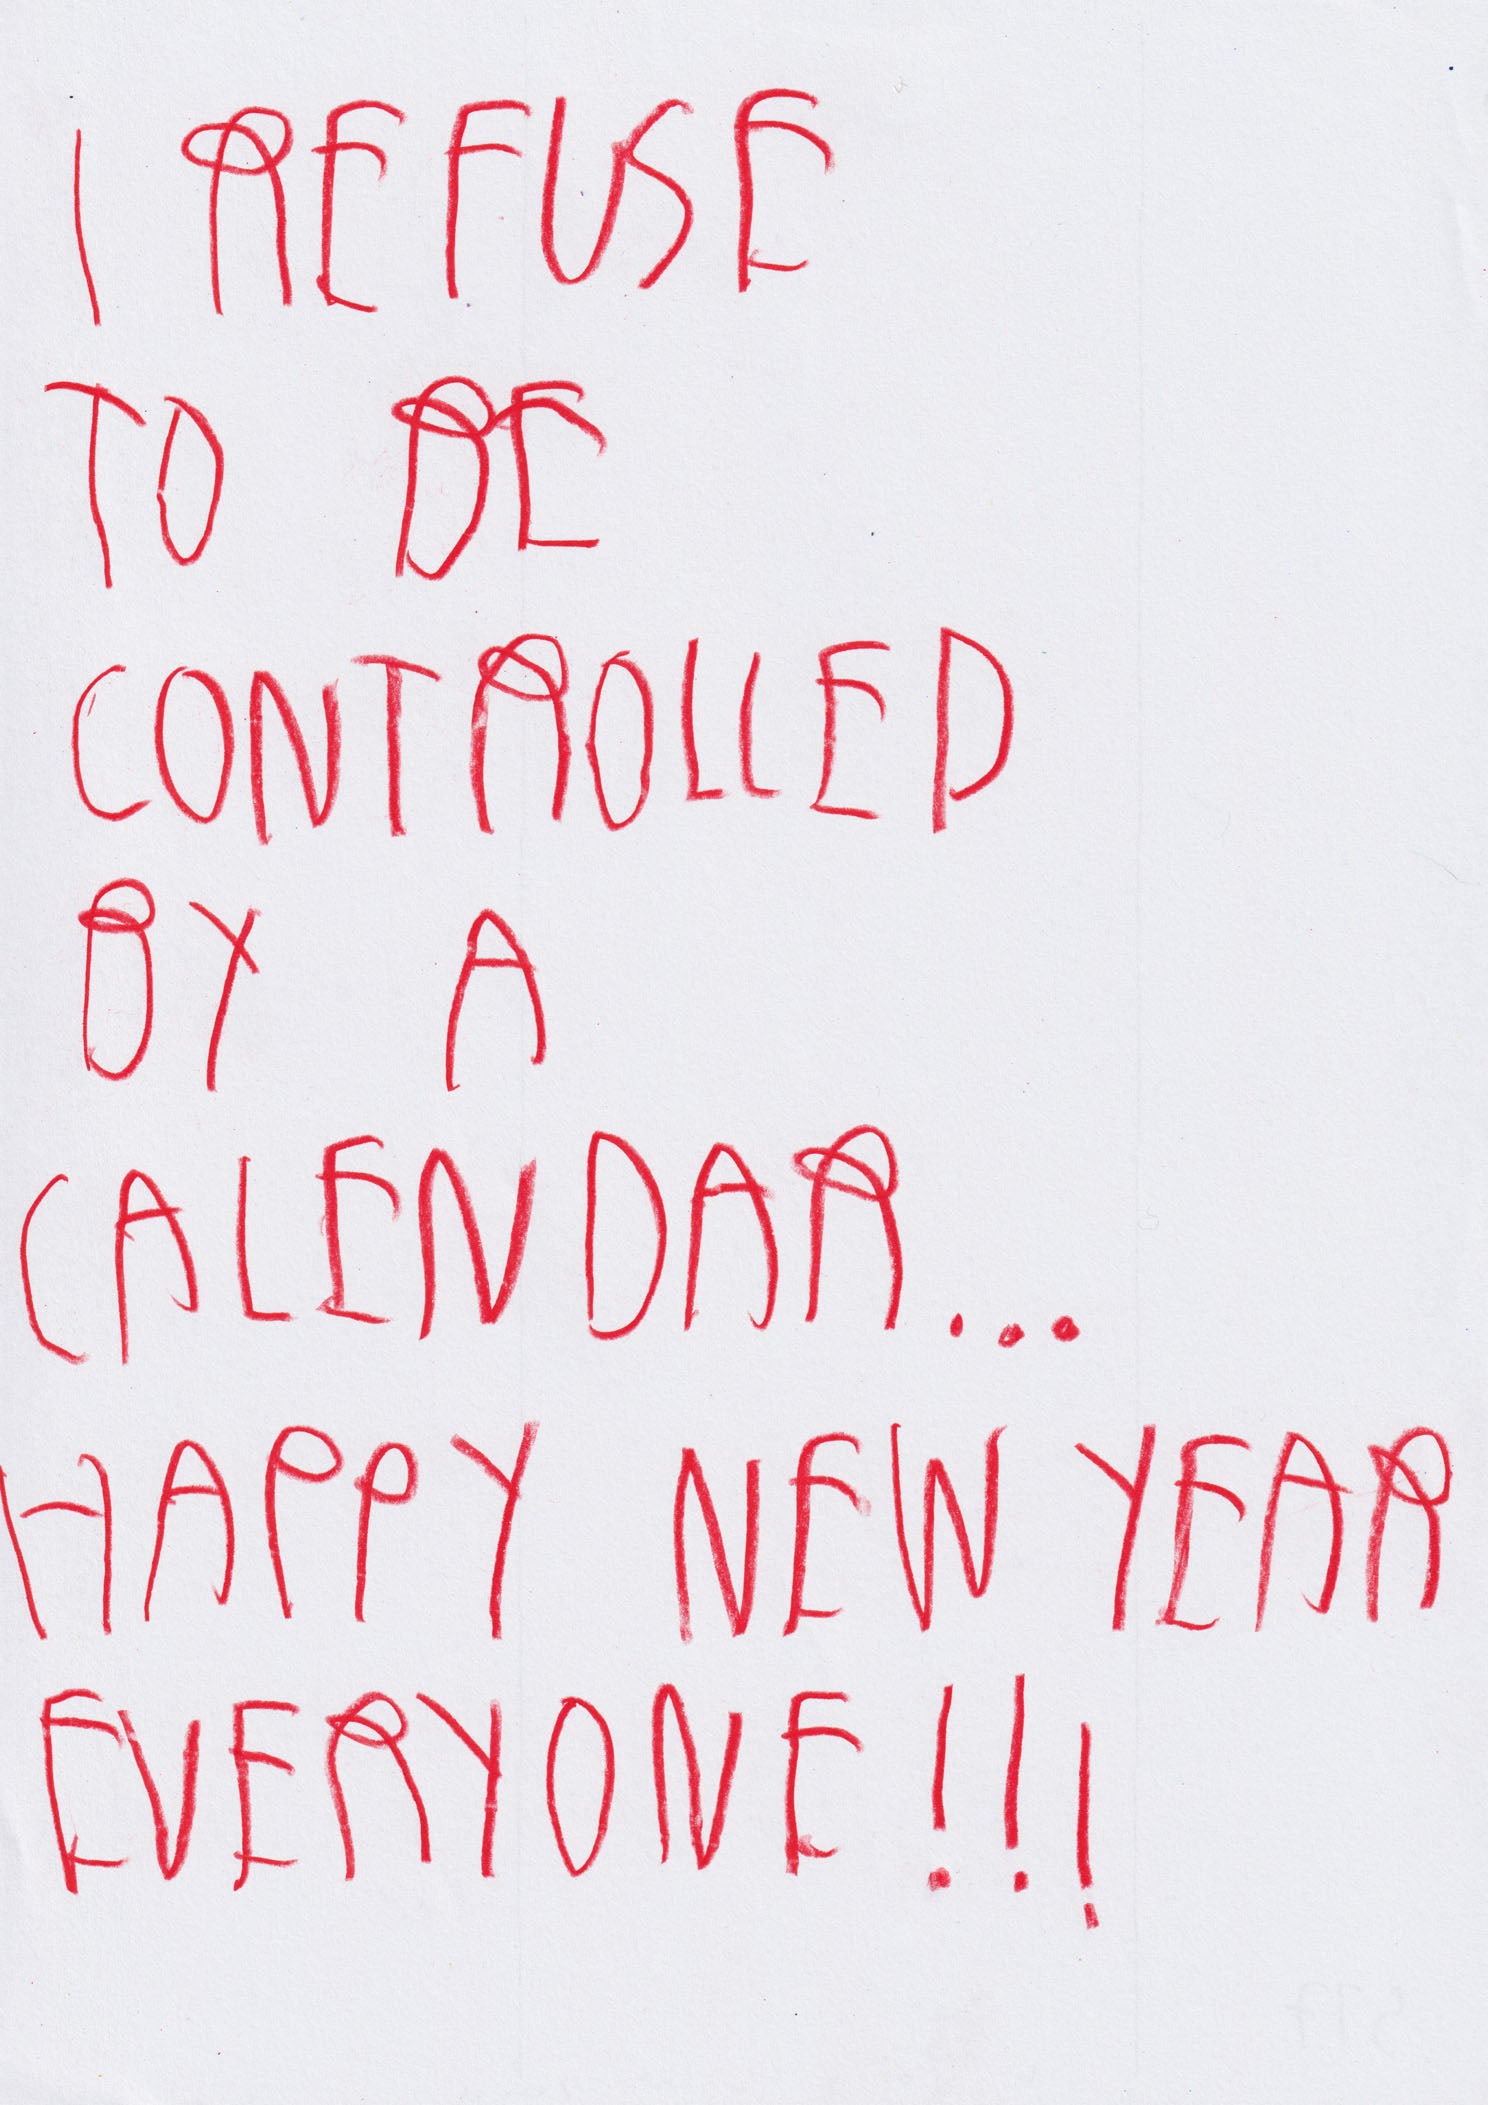 I REFUSE
TO BE
CONTROLLED
BY A
CALENDAR...
HAPPY NEW YEAR
EVERYONE!!!